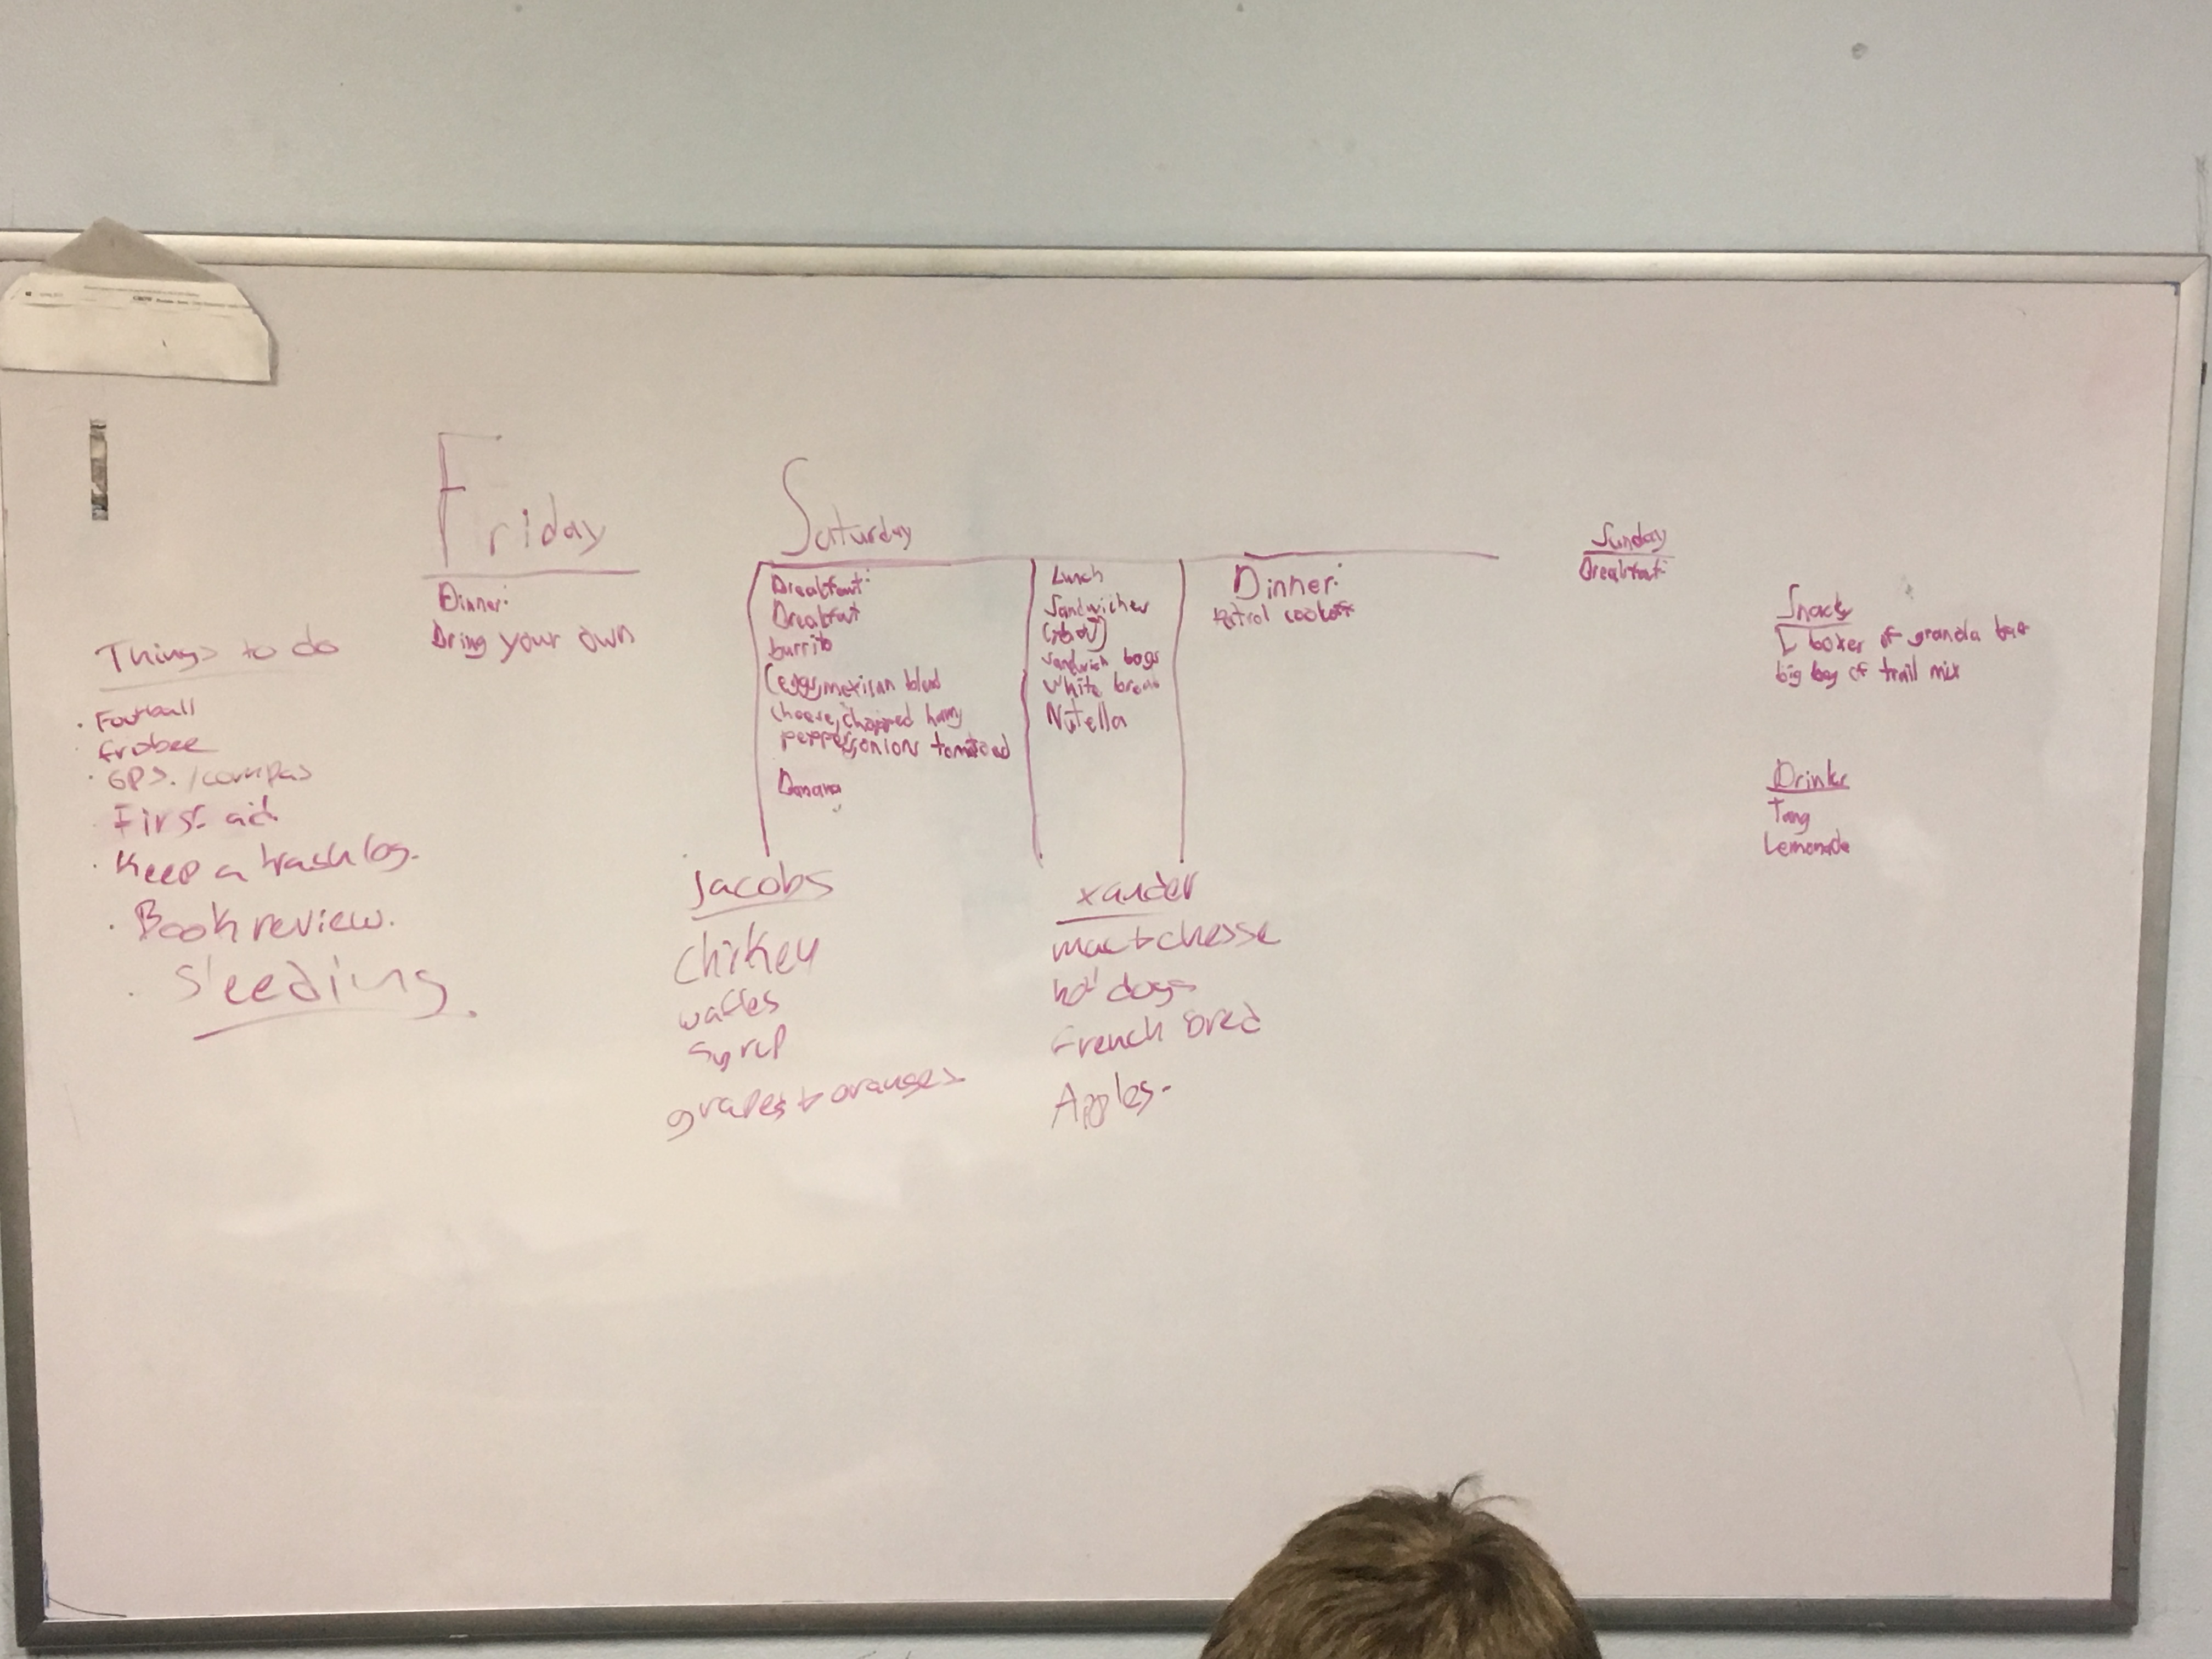 Things to do
Football
frobee
GPS. / compas
First aid
Keep a trash log.
Book review.
Sleeding.
Friday
Dinner:
Bring your own
Saturday
Breakfast:
Breakfast
burrito
(eggs, mexican blend
cheese, chopped ham,
peppers, onions tomatoes
Banana
Lunch
Sandwiches
sandwich bags
white bread
Nutella
Dinner:
Patrol cookoff
jacobs
chikey
waffles
syrup
grapes + oranges
xander
mac + chesse
hot dogs
French bred
Apples.
Sunday
Breakfast:
Snacks
boxes of granola bars
big bag of trail mix
Drinks
Tang
Lemonade